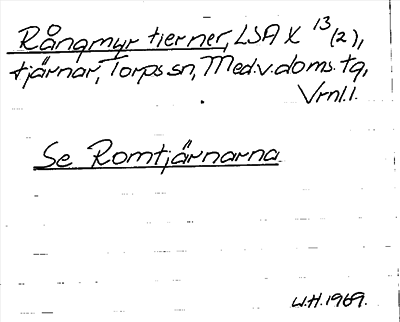 Rångmyr tierner, LSA X 13 (2),
tjärnar, Torps sn, Med.v.doms.tg,
Vrnl.l.
Se Romtjärnarna
W.H. 1969.